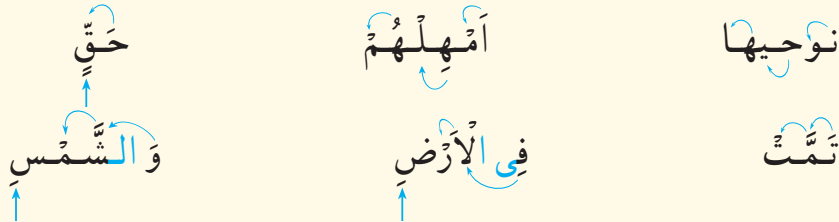 نوحیها اَمْهِلْهُمْ حَقٍّ
تَمَّتْ فِی الْاَرْضِ وَ الشَّمْسِ